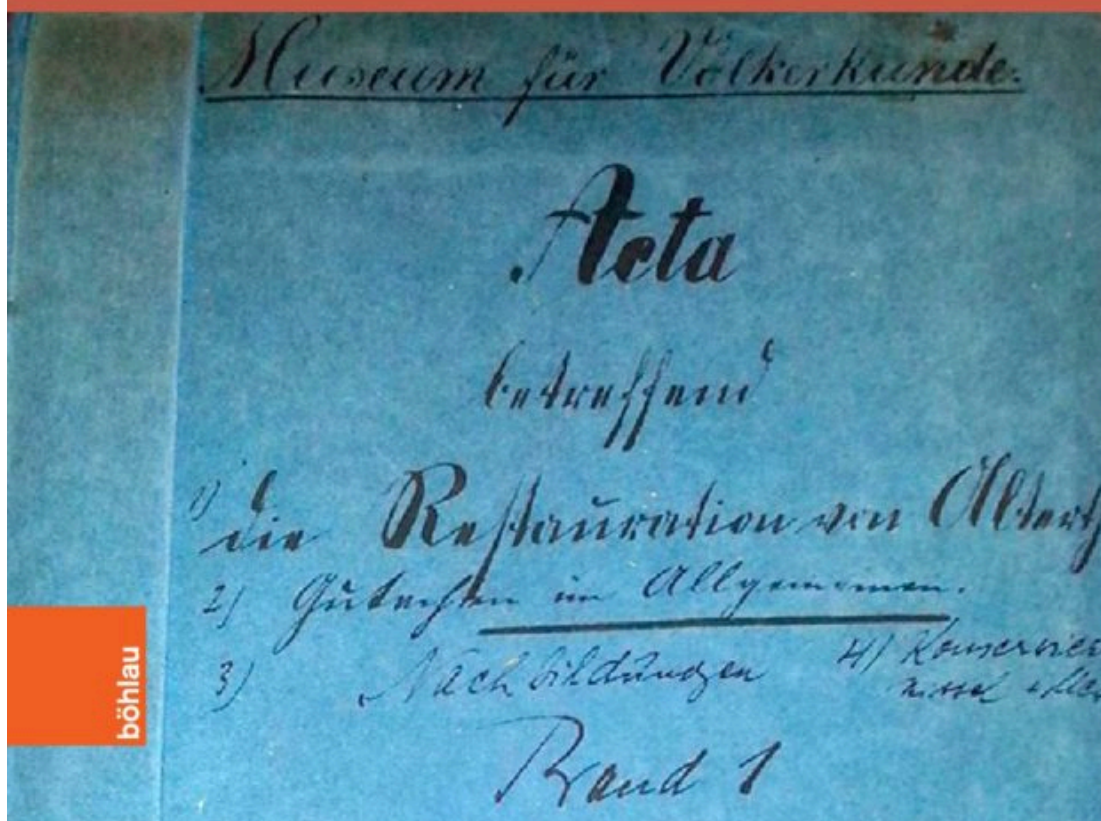 Museum für Völkerkunde.
Acta
betreffend
1) die Restauration von Alterth
2) Gutachten im Allgemeinen.
3) Nachbildungen 4) Konservier
mittel
Band 1
böhlau